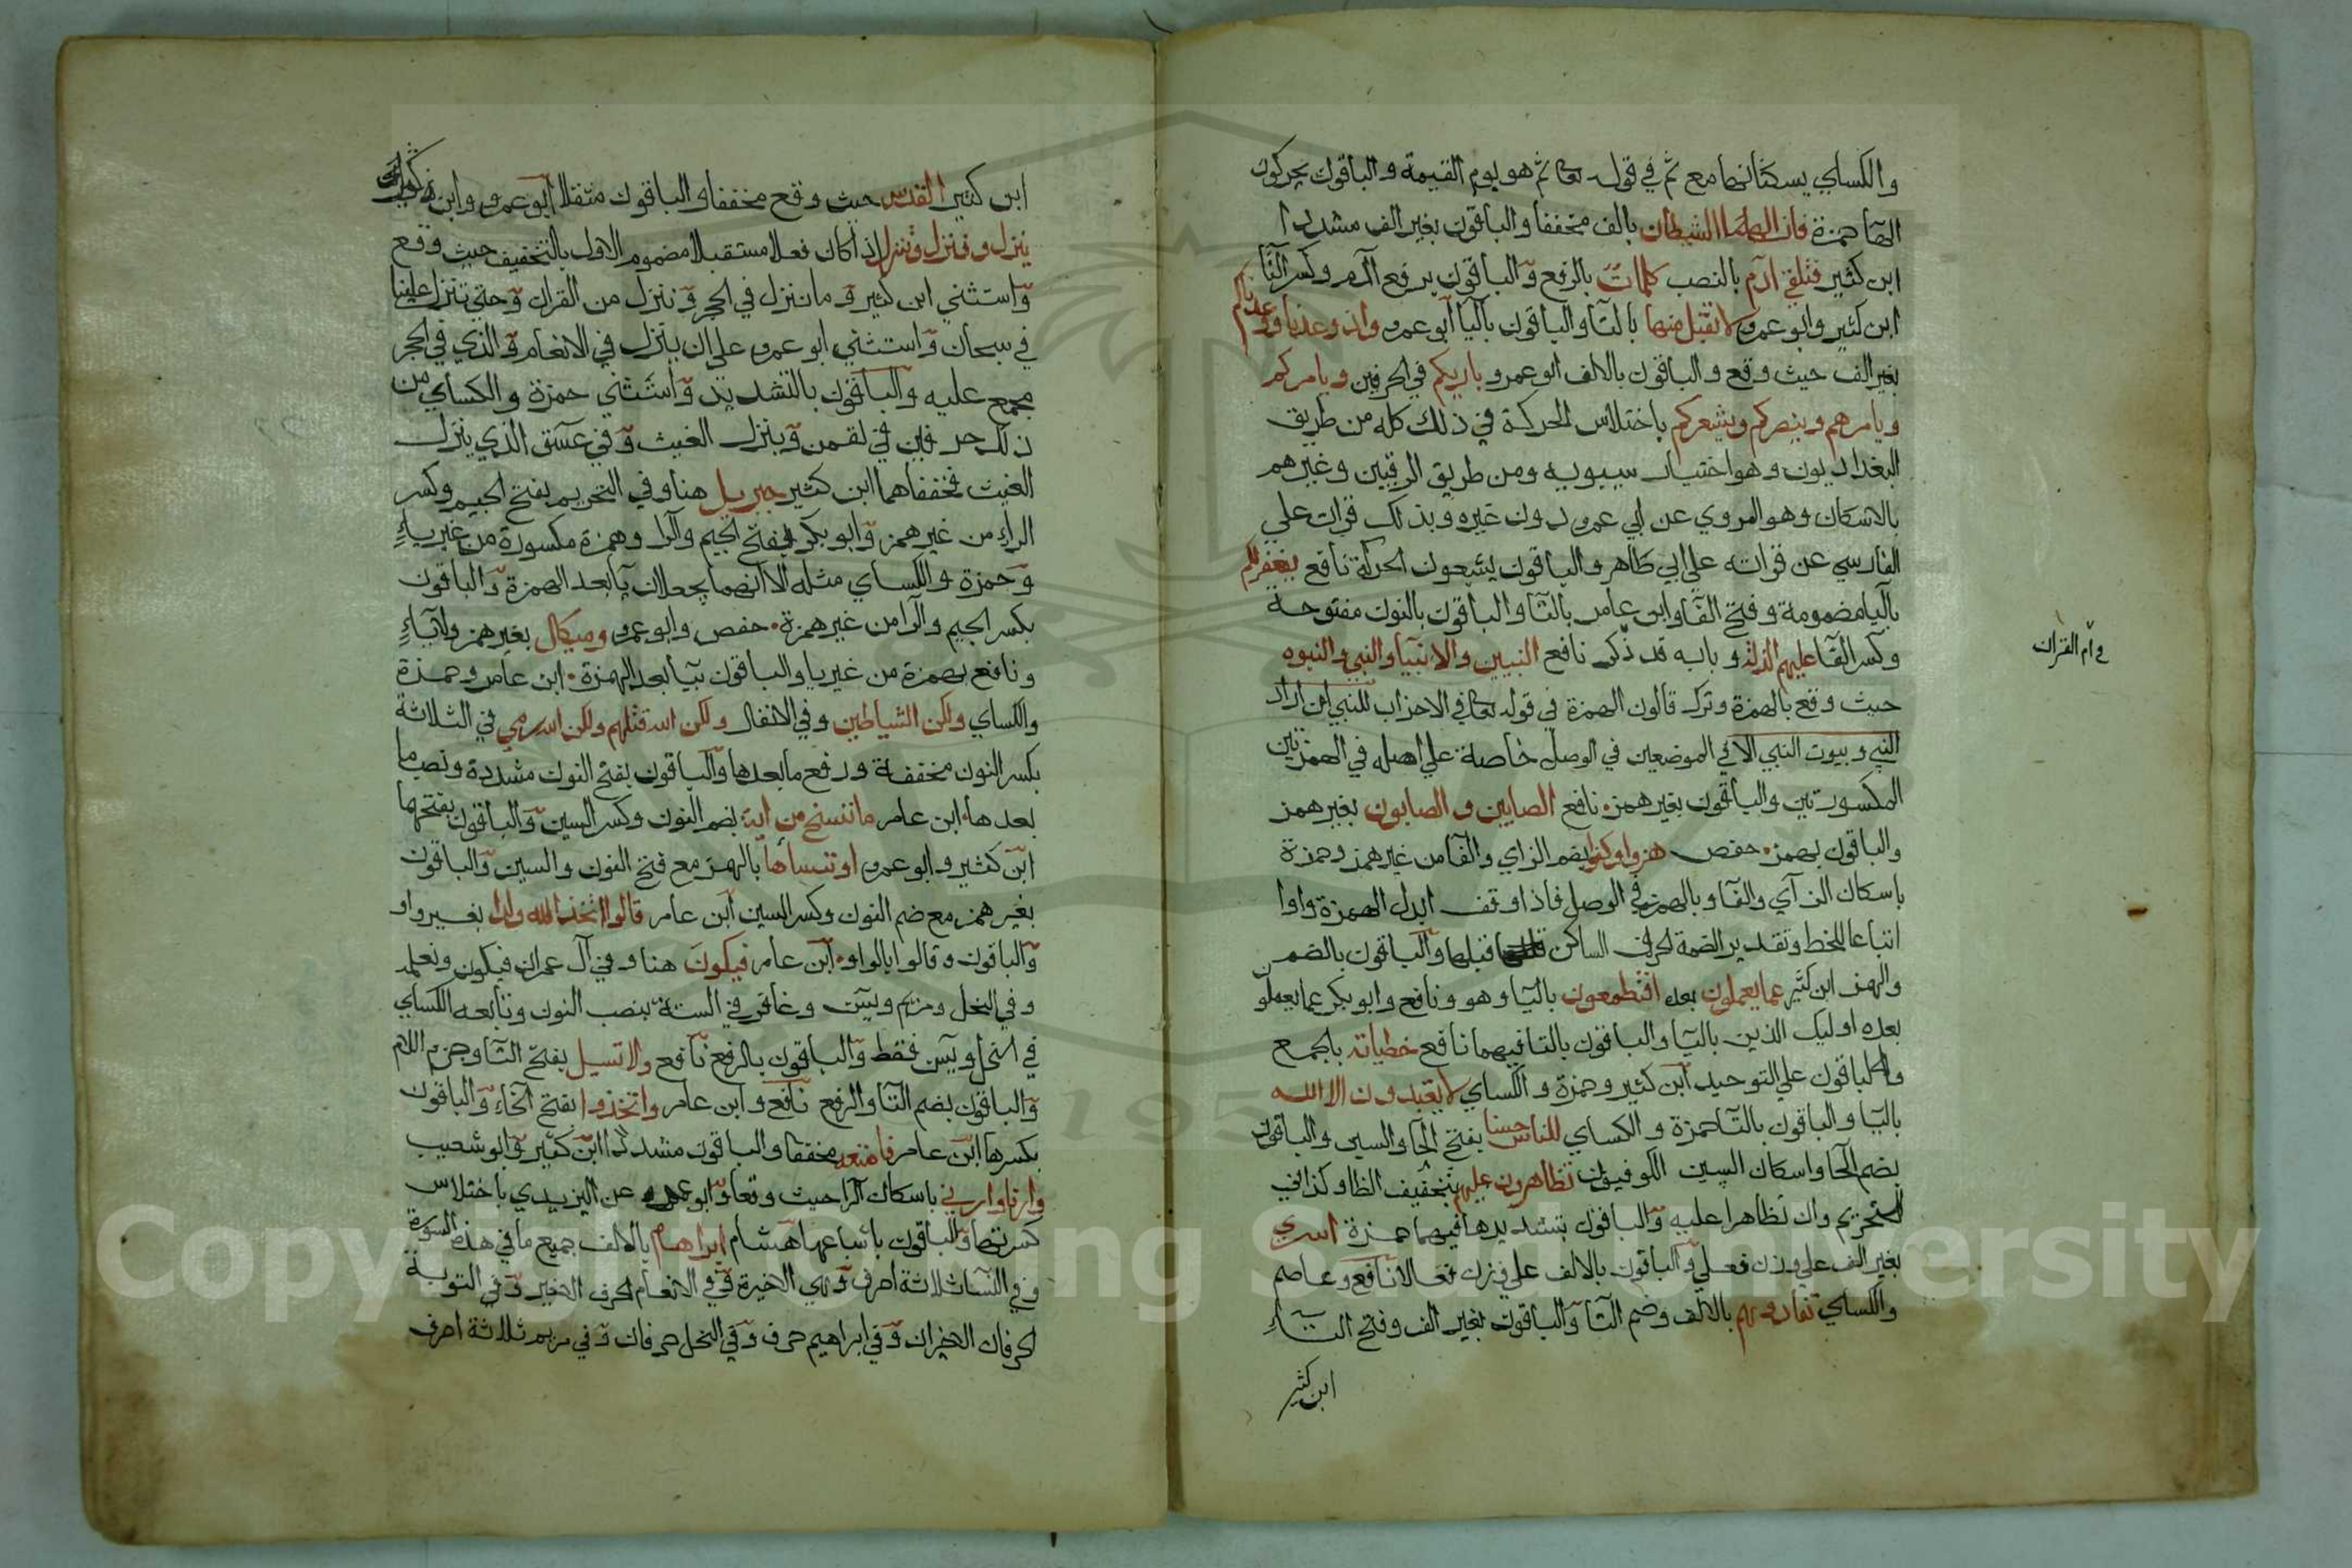 والكساي يسكنانها مع ثم في قوله تعا ثم هو يوم القيمة والباقون يحركون
الها حمزة فازالهما الشيطان بالف مخففا والباقون بغير الف مشددا
ابن كثير فتلقى ادم بالنصب كلمات بالرفع والباقون برفع ادم وكسر التا
ابن كثير وابو عمرو لا تقبل منها بالتا والباقون باليا ابو عمرو واذ وعدنا ووعدناكم
بغير الف حيث وقع والباقون بالالف ابو عمرو باريكم في الحرفين ويامركم
ويامرهم وينصركم ويشعركم باختلاس الحركة في ذلك كله من طريق
البغداديون وهو اختيار سيبويه ومن طريق الرقيين وغيرهم
بالاسكان وهو المروي عن ابي عمرو دون غيره وبذلك قرات علي
الفارسي عن قراته علي ابي طاهر والباقون يشبعون الحركة نافع يغفر لكم
باليا مضمومة وفتح الفا وابن عامر بالتا والباقون بالنون مفتوحة
وكسر الفا عليهم الذلة وبابه قد ذكر نافع النبيين والانبيا والنبي والنبوه
في ام القران
حيث وقع بالهمزة وترك قالون الهمزة في قوله تعا في الاحزاب للنبي ان اراد
النبي وبيوت النبي الا في الموضعين في الوصل خاصة علي اصله في الهمزتين
المكسورتين والباقون بغير همز نافع الصابين و الصابون بغير همز
والباقون بهمز حفص هزوا وكفوا بضم الزاي والفا من غير همز وحمزة
باسكان الزاي والفا وبالهمز في الوصل فاذا وقف ابدل الهمزة واوا
اتباعا للخط وتقدير الضمة لحرف الساكن قبلها والباقون بالضم
والهمز ابن كثير عما يعملون بعده افتطمعون باليا وهو ونافع وابو بكر عما يعملون
بعده اوليك الذين باليا والباقون بالتا فيهما نافع خطياته بالجمع
والباقون علي التوحيد ابن كثير وحمزة والكساي لا يعبدون الا الله
باليا والباقون بالتا حمزة والكساي للناس حسنا بفتح الحا والسين والباقون
بضم الحا واسكان السين الكوفيون تظاهرون عليهم بتخفيف الظا وكذا في
التحريم وان تظاهرا عليه والباقون بتشديدها فيهما حمزة اسري
بغير الف علي وزن فعلي والباقون بالالف علي وزن فعالا نافع وعاصم
والكساي تفادوهم بالالف وضم التا والباقون بغير الف وفتح التاء
ابن كثير
ابن كثير القدس حيث وقع مخففا والباقون مثقلا ابو عمرو وابن كثير
ينزل وننزل وتنزل اذا كان فعلا مستقبلا مضموم الاول بالتخفيف حيث وقع
واستثني ابن كثير وما ننزل في الحجر وننزل من القران وحتي تنزل علينا
في سبحان واستثني ابو عمرو علي ان ينزل في الانعام والذي في الحجر
مجمع عليه والباقون بالتشديد واستثني حمزة والكساي من
ذلك حرفين في لقمن وينزل الغيث وفي عسق الذي ينزل
الغيث فخففاهما ابن كثير جبريل هنا وفي التحريم بفتح الجيم وكسر
الراء من غير همز وابو بكر بفتح الجيم والرا وهمزة مكسورة من غير ياء
وحمزة والكساي مثله الا انهما يجعلان يا بعد الهمزة والباقون
بكسر الجيم والرا من غير همزة حفص وابو عمرو وميكال بغير همز ولا ياء
ونافع بهمزة من غير يا والباقون بيا بعد الهمزة ابن عامر وحمزة
والكساي ولكن الشياطين وفي الانفال ولكن الله قتلهم ولكن الله رمي في الثلاثة
بكسر النون مخففة ورفع ما بعدها والباقون بفتح النون مشددة ونصب ما
بعدها ابن عامر ما ننسخ من اية بضم النون وكسر السين والباقون بفتحها
ابن كثير وابو عمرو او ننساها بالهمز مع فتح النون والسين والباقون
بغير همز مع ضم النون وكسر السين ابن عامر قالوا اتخذ الله ولدا بغير واو
والباقون وقالوا بالواو ابن عامر فيكون هنا وفي آل عمران فيكون ونعلمه
وفي النحل ومريم ويس وغافر في الستة بنصب النون وتابعه الكساي
في النحل ويس فقط والباقون بالرفع نافع ولا تسيل بفتح التا وجزم اللام
والباقون بضم التا والرفع نافع وابن عامر واتخذوا بفتح الخاء والباقون
بكسرها ابن عامر فامتعه مخففا والباقون مشددا ابن كثير وابو شعيب
وارنا وارني باسكان الرا حيث وقعا وابو عمرو عن اليزيدي باختلاس
كسرتها والباقون باشباعها هشام ابراهام بالالف جميع ما في هذه السورة
وفي النسا ثلاثة احرف وهي الاخيرة وفي الانعام الحرف الاخير وفي التوبة
الحرفان الاخيران وفي ابراهيم حرف وفي النحل حرفان وفي مريم ثلاثة احرف